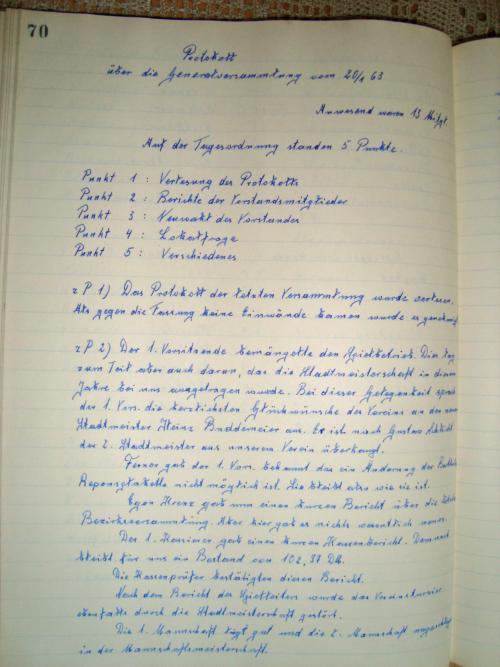 70
Protokoll
über die Generalversammlung vom 20/1 63
Anwesend waren 13 Mitgl
Auf der Tagesordnung standen 5 Punkte.
Punkt 1 : Verlesung des Protokolls
Punkt 2 : Berichte der Vorstandsmitglieder
Punkt 3 : Neuwahl des Vorstandes
Punkt 4 : Lokalfrage
Punkt 5 : Verschiedenes
z P 1) Das Protokoll der letzten Versammlung wurde verlesen.
Als gegen die Fassung keine Einwände kamen wurde es genehmigt
z P 2) Der 1. Vorsitzende bemängelte den Spielbetrieb. Dies lag
zum Teil aber auch daran, das die Stadtmeisterschaft in diesem
Jahre bei uns ausgetragen wurde. Bei dieser Gelegenheit sprach
der 1. Vors. die herzlichsten Glückwünsche des Vereins an den neuen
Stadtmeister Heinz Buddemeier aus. Er ist nach Gustav
der 2. Stadtmeister aus unserem Verein überhaupt.
Ferner gab der 1. Vors. bekannt das ein Änderung der
nicht möglich ist. Sie bleibt also wie sie ist.
Egon gab uns einen kurzen Bericht über die
Bezirksversammlung. Aber hier gab es nichts wesentlich neues.
Der 1. Kassierer gab einen kurzen Kassenbericht. Demnach
bleibt für uns ein Bestand von 102,37 DM.
Die Kassenprüfer bestätigten diesen Bericht.
Nach dem Bericht des Spielleiters wurde das Vereinsturnier
ebenfalls durch die Stadtmeisterschaft gestört.
Die 1. Mannschaft liegt gut und die 2. Mannschaft
in der Mannschaftsmeisterschaft.